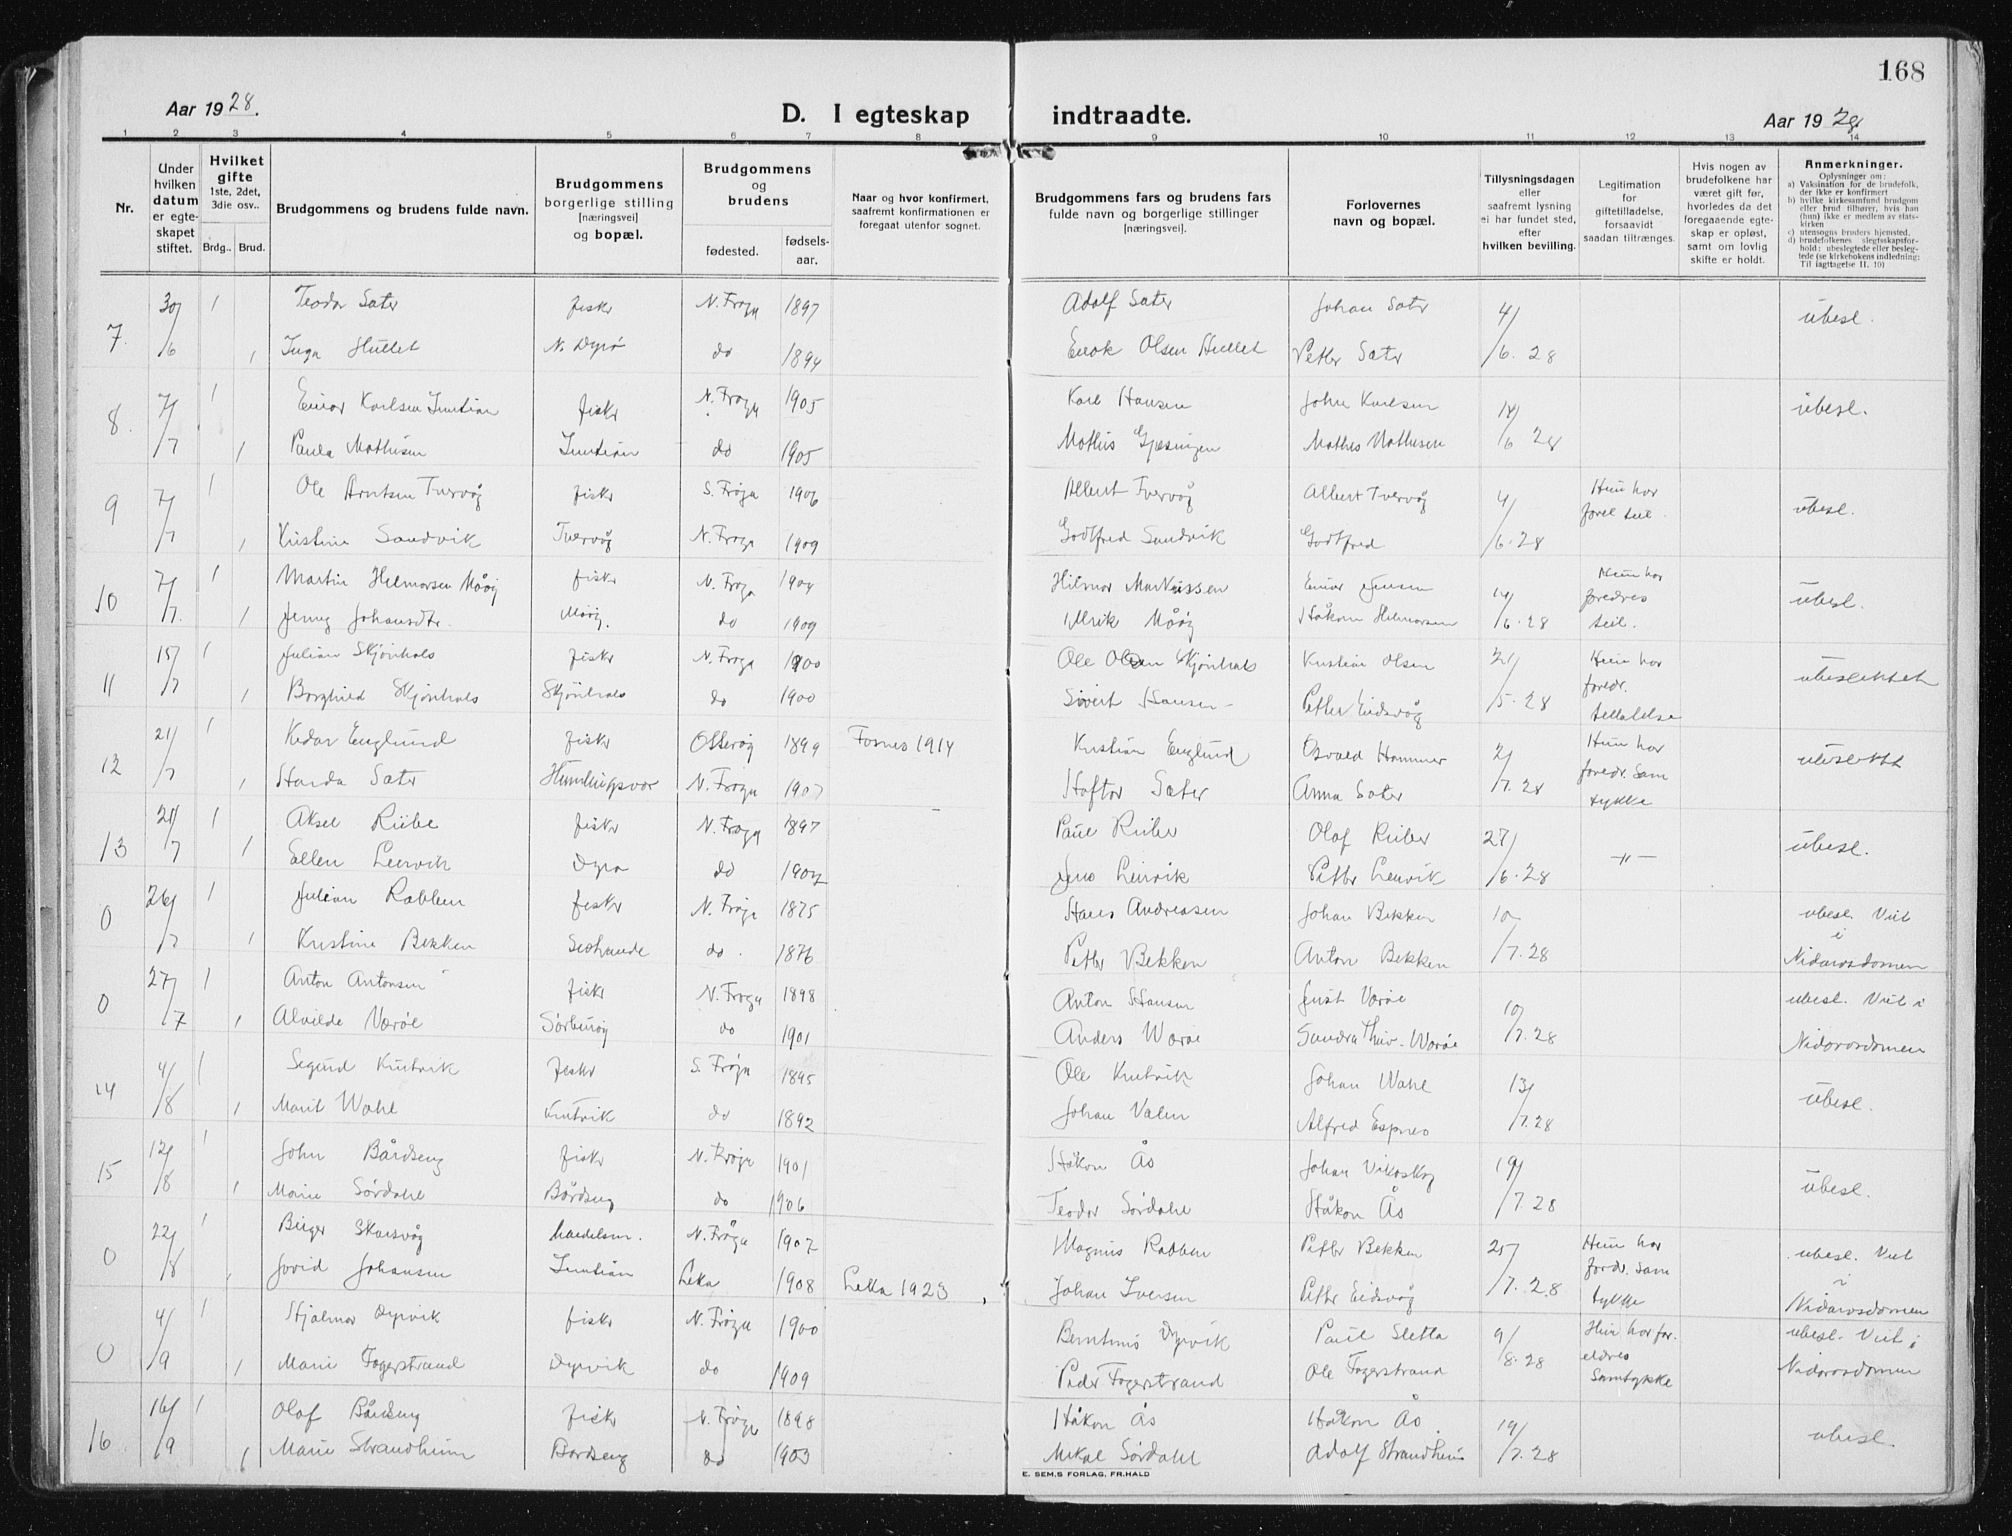 168
Aar 1928.
D. I egteskap indtraadte.
Aar 1928
1 2 3 4 5 6 7 8 9 10 11 12 13 14
Nr.
Under hvilken datum er egteskapet stiftet.
Hvilket gifte 1ste, 2det, 3die osv..
Brdg.. Brud.
Brudgommens og brudens fulde navn.
Brudgommens borgerlige stilling [næringsvei] og bopæl.
Brudgommens og brudens
fødested. fødsels-aar.
Naar og hvor konfirmert, saafremt konfirmationen er foregaat utenfor sognet.
Brudgommens fars og brudens fars fulde navn og borgerlige stillinger [næringsvei].
Forlovernes navn og bopæl.
Tillysningsdagen eller saafremt lysning ei har fundet sted, efter hvilken bevilling.
Legitimation for giftetilladelse, forsaavidt saadan tiltrænges.
Hvis nogen av brudefolkene har været gift før, hvorledes da det foregaaende egteskap er opløst, samt om lovlig skifte er holdt.
Anmerkninger.
Oplysninger om:
a) Vaksination for de brudefolk, der ikke er konfirmert
b) hvilke kirkesamfund brudgom eller brud tilhører, hvis han (hun) ikke er medlem av statskirken
c) utensogns bruders hjemsted.
d) brudefolkenes slegtsskapsforhold: ubeslegtede eller beslegtede (se kirkebokens indledning: Til iagttagelse II. 10)
7 30/6 1 Teodor Sæter fiskr N. Frøya 1897 Adolf Sæter Johan Sæter 4/6. 28 ubesl.
1 Inga Hullet N. Dyrø do 1894 Enok Olsen Hullet Petter Sæter
8. 7/7 1 Einar Karlsen Inntian fiskr N. Frøya 1905 Karl Hansen John Karlsen 14/6 28 ubesl.
1 Paula Mathisen Inntian do 1905 Mathis Gjæsingen Mathis Mathisen
9 7/7 1 Ole Arntsen Tvervåg fiskr S. Frøya 1906 Albert Tvervåg Albert Tvervåg 4/6. 28 Hun har ubesl.
1 Kristine Sandvik Tvervåg N. Frøya 1909 Godtfred Sandvik Godtfred
10 7/7. 1 Martin Helmersen Måøy fiskr N. Frøya 1904 Hilmar Markussen Einar Jensen 14/6. 28 Hun har foredres teil. ubesl.
1 Jenny Johansdtr. Måøy. do 1909 Ulrik Måøy Håkon Helmersen
11 15/7 1 Julian Skjønhals fiskr N. Frøya 1900 Ole Olsen Skjønhals Kristian Olsen 21/5. 28 Hun har foredr. tellatelse ubeslektet
1 Borghild Skjønhals Skjønhals do 1900 Sivert Hansen Petter Eidsvåg
12 21/7 1 Kedar Englund fiskr Otterøy 1899 Fosnes 1914 Kristian Englund Osvald Hammer 2/7. 28 Hun har foredr. samtykke ubeslektet
1 Harda Sæter Humlingsvær N. Frøya 1907 Haftor Sæter Anna Sæter
13 21/7 1 Aksel Riibe fiskr N. Frøya 1897 Paul Riiber Olaf Riiber 27/6. 28 —"— ubesl.
1 Ellen Lervik Dyrø do 1902 Jens Lervik Petter Lervik
0 26/7 1 Julian Rabben fiskr N. Frøya 1875 Hans Andreasen Johan Bekken 10/7. 28 ubesl. Viet i Nidarosdomen
1 Kristine Bekken do. 1876 Petter Bekken Anton Bekken
0 27/7 1 Anton Antonsen fiskr N. Frøya 1898 Anton Hansen Just Værøe 10/7. 28 ubesl. Viet i Nidarosdomen
1 Alvilde Værøe Sørburøy do 1901 Anders Wærøe Sandra Wærøe
14 4/8 1 Sigurd Knutvik fiskr S. Frøya 1895 Ole Knutvik Johan Wahl 13/7. 28 ubesl.
1 Marit Wahl Knutvik do 1892 Johan Valen Alfred Espnes
15 12/8 1 John Bårdseng fiskr N. Frøya 1901 Håkon Ås Johan Vikaskag 19/7. 28 ubesl.
1 Marie Sørdahl Bårdseng do 1906 Teodor Sørdahl Håkon Ås
0 22/8 1 Birger Skarsvåg handelsm. N. Frøya 1907 Magnus Rabben Petter Bekken 25/7. 28 Hun har fordr. samtykke ubesl. Viet i Nidarosdomen
1 Jovid Johansen Inntian Leka 1908 Leka 1923 Johan Iversen Petter Eidsvåg
0 4/9 1 Hjalmar Dyrvik fiskr N. Frøya 1900 Berntinus Dyrvik Paul Sletta 9/8. 28 Hun har foreldres Samtykke ubesl. Viet i Nidarosdomen
1 Marie Fagerstrand Dyrvik do 1909 Peder Fagerstrand Ole Fagerstrand
16. 16/9 1 Olaf Bårdseng fiskr N. Frøya 1898 Håkon Ås Håkon Ås 19/7. 28 ubesl.
1 Marie Strandheim Bårdseng do 1903 Mikal Sørdahl Adolf Strandheim
E. SEM.S FORLAG, FR.HALD